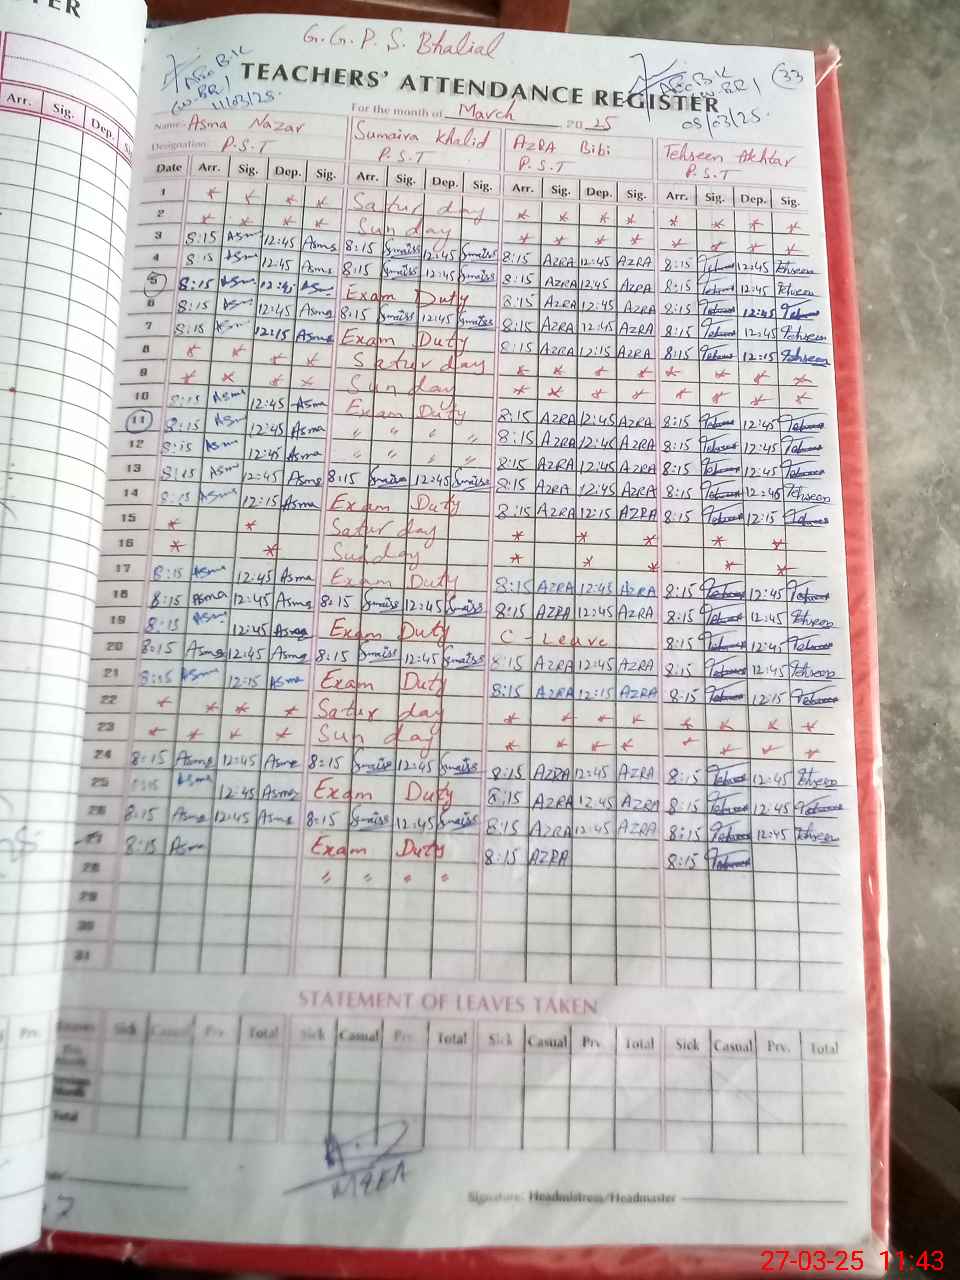 G.G.P.S. Bhalial
TEACHERS' ATTENDANCE REGISTER
33
11/03/25.
05/03/25.
For the month of March 2025
Name Asma Nazar Sumaira Khalid AZRA Bibi Tehseen Akhtar
Designation P.S.T P.S.T P.S.T P.S.T
Date Arr. Sig. Dep. Sig. Arr. Sig. Dep. Sig. Arr. Sig. Dep. Sig. Arr. Sig. Dep. Sig.
1 * * * * Saturday * * * * * * * *
2 * * * * Sunday * * * * * * * *
3 8:15 Asma 12:45 Asma 8:15 12:45 8:15 AZRA 12:45 AZRA 8:15 12:45 Tehseen
4 8:15 Asma 12:45 Asma 8:15 12:45 8:15 AZRA 12:45 AZRA 8:15 12:45 Tehseen
5 8:15 Asma 12:45 Asma Exam Duty 8:15 AZRA 12:45 AZRA 8:15 12:45
6 8:15 Asma 12:45 Asma 8:15 12:45 8:15 AZRA 12:45 AZRA 8:15 12:45 Tehseen
7 8:15 Asma 12:15 Asma Exam Duty 8:15 AZRA 12:15 AZRA 8:15 12:15 Tehseen
8 * * * * Saturday * * * * * * * *
9 * * * * Sunday * * * * * * * *
10 8:15 Asma 12:45 Asma Exam Duty 8:15 AZRA 12:45 AZRA 8:15 12:45
11 8:15 Asma 12:45 Asma " " " " 8:15 AZRA 12:45 AZRA 8:15 12:45
12 8:15 Asma 12:45 Asma " " " " 8:15 AZRA 12:45 AZRA 8:15 12:45
13 8:15 Asma 12:45 Asma 8:15 12:45 8:15 AZRA 12:45 AZRA 8:15 12:45 Tehseen
14 8:15 Asma 12:15 Asma Exam Duty 8:15 AZRA 12:15 AZRA 8:15 12:15
15 * * Saturday * * * * *
16 * * Sunday * * * * *
17 8:15 Asma 12:45 Asma Exam Duty 8:15 AZRA 12:45 AZRA 8:15 12:45
18 8:15 Asma 12:45 Asma 8:15 12:45 8:15 AZRA 12:45 AZRA 8:15 12:45 Tehseen
19 8:15 Asma 12:45 Asma Exam Duty C-Leave 8:15 12:45
20 8:15 Asma 12:45 Asma 8:15 12:45 8:15 AZRA 12:45 AZRA 8:15 12:45 Tehseen
21 8:15 Asma 12:15 Asma Exam Duty 8:15 AZRA 12:15 AZRA 8:15 12:15
22 * * * * Saturday * * * * * * * *
23 * * * * Sunday * * * * * * * *
24 8:15 Asma 12:45 Asma 8:15 12:45 8:15 AZRA 12:45 AZRA 8:15 12:45 Tehseen
25 8:15 Asma 12:45 Asma Exam Duty 8:15 AZRA 12:45 AZRA 8:15 12:45
26 8:15 Asma 12:45 Asma 8:15 12:45 8:15 AZRA 12:45 AZRA 8:15 12:45 Tehseen
27 8:15 Asma Exam Duty 8:15 AZRA 8:15
28 " " " "
29
30
31
STATEMENT OF LEAVES TAKEN
Sick Casual Prv. Total Sick Casual Prv. Total Sick Casual Prv. Total Sick Casual Prv. Total
Total
MEA
Signature: Headmistress/Headmaster
27-03-25 11:43